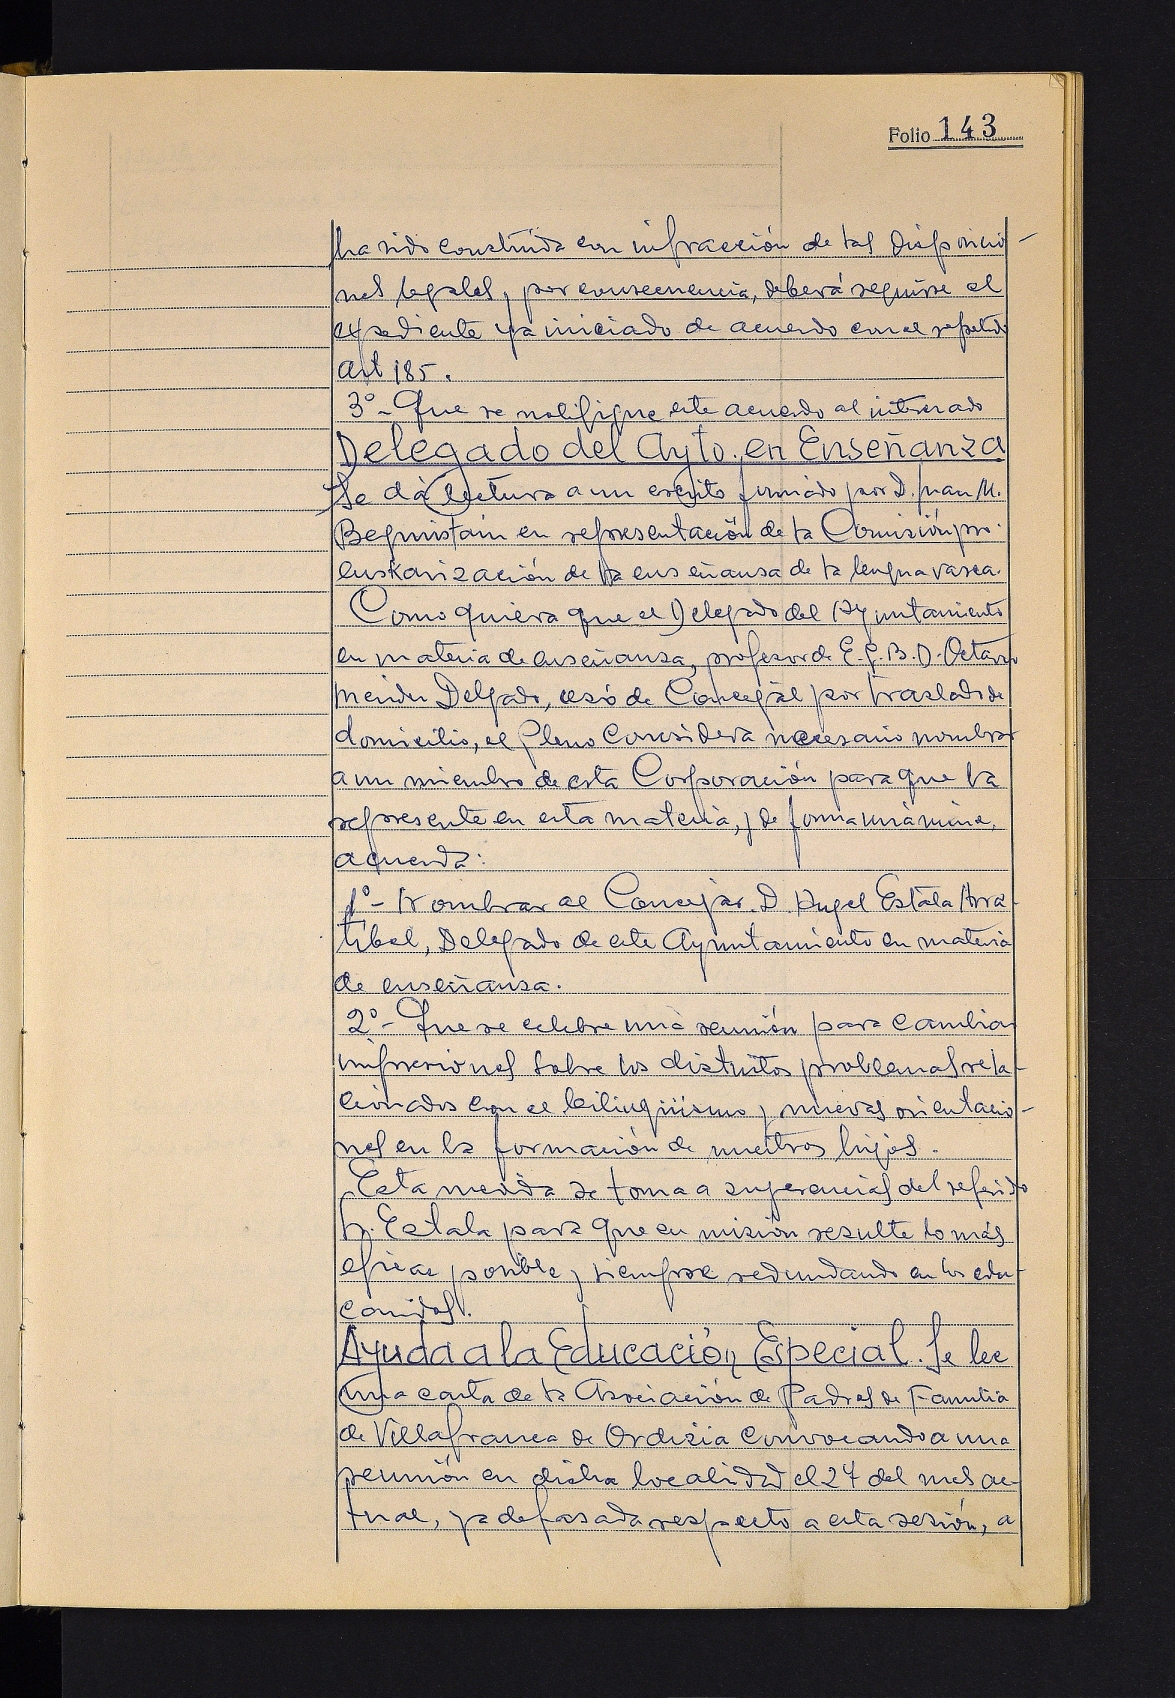 Folio 143
ha sido construida con infracción de tas disposicio-
nes legales, por consecuencia, deberá seguirse el
expediente ya iniciado de acuerdo con el repetido
art 185.
3º- Que se notifique este acuerdo al interesado
Delegado del Ayto. en Enseñanza
Se dá lectura a un escrito firmado por D. Juan M.
Beguiristain en representación de la Comisión pro-
euskarización de la enseñansa de la lengua vasca.
Como quiera que el Delegado del Ayuntamiento
en materia de enseñansa, profesor de E.G.B. D. Octavio
Mendez Delgado, cesó de Concejal por traslado de
domicilio, el Pleno considera necesario nombrar
a un miembro de esta Corporación para que la
represente en esta materia, y de forma unánime,
acuerda:
1º- Nombrar al Concejal D. Angel Estala Arra-
tibel, Delegado de este Ayuntamiento en materia
de enseñansa.
2º- Que se celebre una reunión para cambiar
impresiones sobre los distintos problemas rela-
cionados con el bilingüismo y nuevas orientacio-
nes en la formación de nuestros hijos.
Esta medida se toma a sugerencias del referido
Sr. Estala para que su misión resulte lo más
eficaz posible y siempre redundando en los edu-
candos.
Ayuda a la Educación Especial. Se lee
una carta de la Asociación de Padres de Familia
de Villafranca de Ordizia convocando a una
reunión en dicha localidad el 27 del mes ac-
tual, ya defasada respecto a esta sesión, a